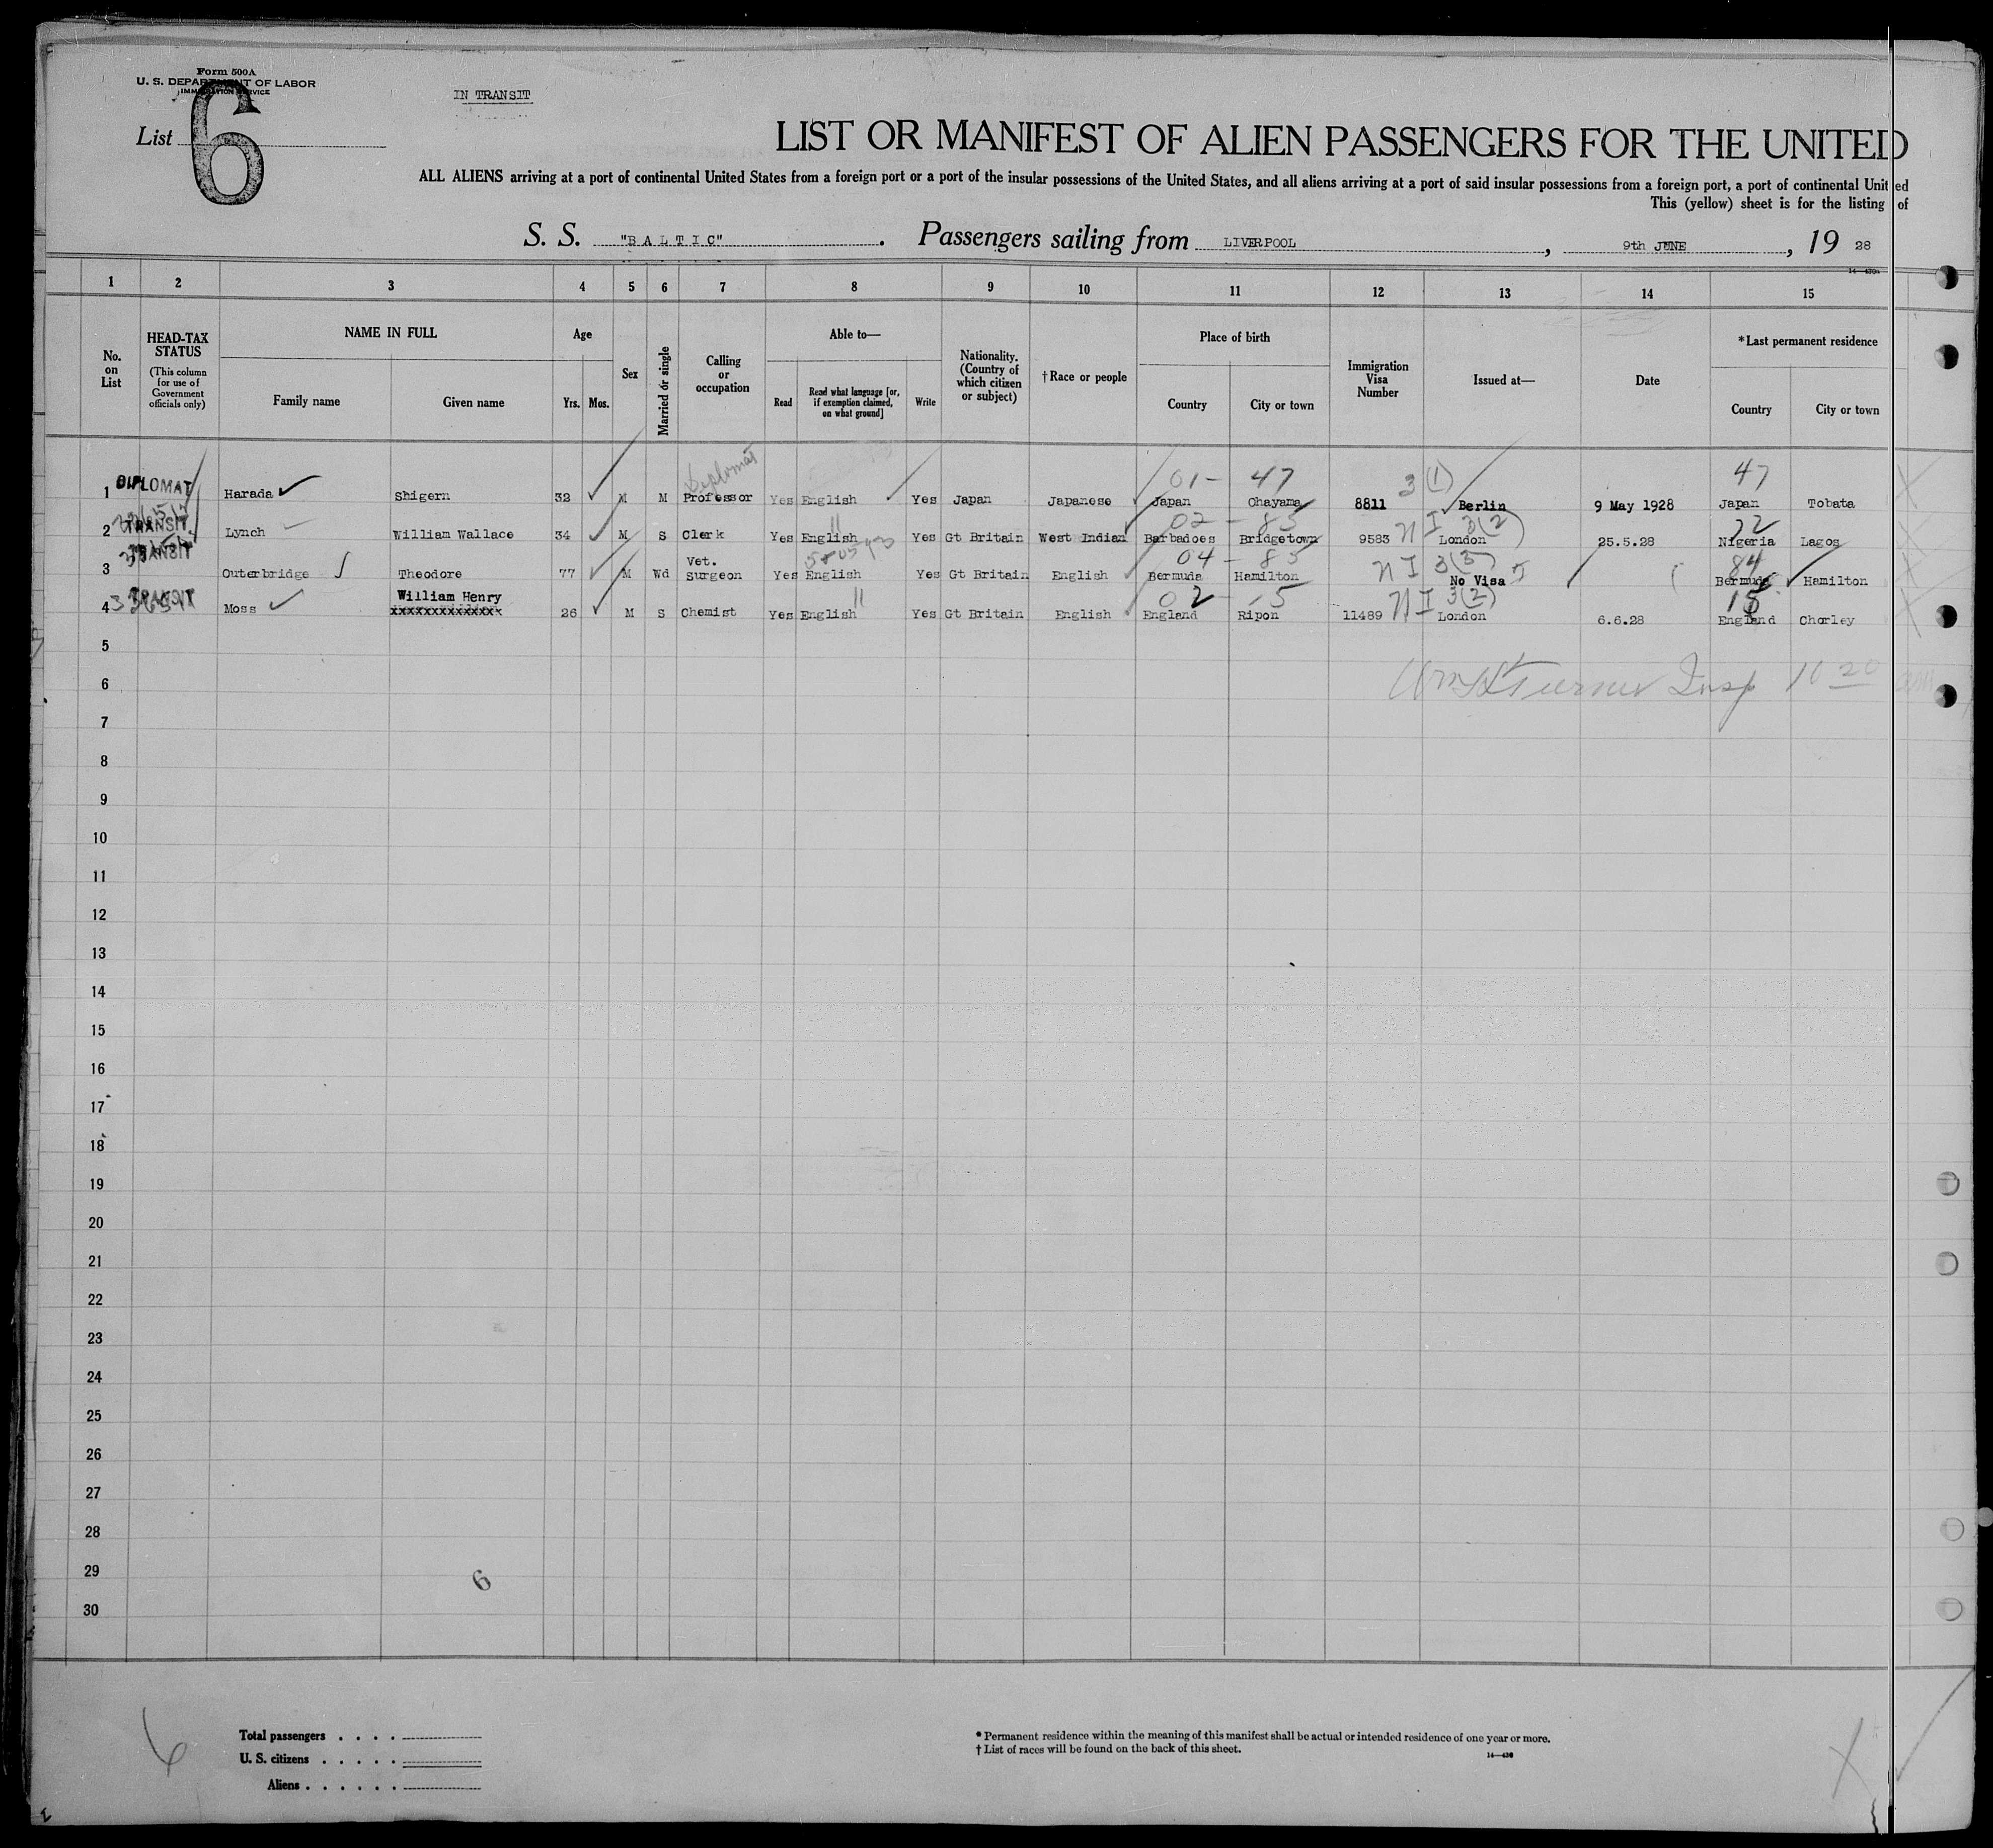 Form 500A
U. S. DEPARTMENT OF LABOR
IMMIGRATION SERVICE
IN TRANSIT
List 6
LIST OR MANIFEST OF ALIEN PASSENGERS FOR THE UNITED
ALL ALIENS arriving at a port of continental United States from a foreign port or a port of the insular possessions of the United States, and all aliens arriving at a port of said insular possessions from a foreign port, a port of continental United
This (yellow) sheet is for the listing of
S. S. "BALTIC". Passengers sailing from LIVERPOOL, 9th JUNE, 19 28
1 2 3 4 5 6 7 8 9 10 11 12 13 14 15
No. on List
HEAD-TAX STATUS
(This column for use of Government officials only)
NAME IN FULL
Family name Given name
Age
Yrs. Mos.
Sex
Married or single
Calling or occupation
Able to—
Read
Read what language [or, if exemption claimed, on what ground]
Write
Nationality. (Country of which citizen or subject)
†Race or people
Place of birth
Country City or town
Immigration Visa Number
Issued at—
Date
*Last permanent residence
Country City or town
Diplomat
01- 47 3(1) 47
1 DIPLOMAT Harada Shigern 32 M M Professor Yes English Yes Japan Japanese Japan Ohayama 8811 Berlin 9 May 1928 Japan Tobata
02 - 85 N I 3(2) 72
2 TRANSIT Lynch William Wallace 34 M S Clerk Yes English Yes Gt Britain West Indian Barbadoes Bridgetown 9583 London 25.5.28 Nigeria Lagos
04 - 85 N I 3(3) 84
3 TRANSIT Outerbridge Theodore 77 M Wd Vet. Surgeon Yes English Yes Gt Britain English Bermuda Hamilton No Visa Bermuda Hamilton
02 - 15 N I 3(2) 15
4 TRANSIT Moss William Henry xxxxxxxxxxxxx 26 M S Chemist Yes English Yes Gt Britain English England Ripon 11489 London 6.6.28 England Chorley
5
6 Wm H Turner Insp 10 20
7
8
9
10
11
12
13
14
15
16
17
18
19
20
21
22
23
24
25
26
27
28
29
6
30
6
Total passengers . . . .
U. S. citizens . . . . .
Aliens . . . . . .
* Permanent residence within the meaning of this manifest shall be actual or intended residence of one year or more.
† List of races will be found on the back of this sheet.
14—430
X